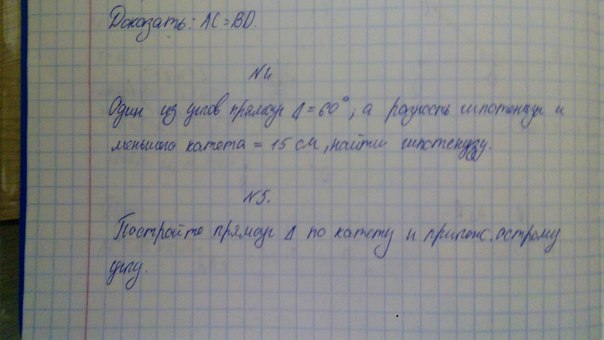 Доказать: AC = BD.
N4
Один из углов прямоуг Δ = 60°, а разность гипотенузы и
меньшего катета = 15 см, найти гипотенузу.
N5.
Постройте прямоуг Δ по катету и прилеж. острому
углу.